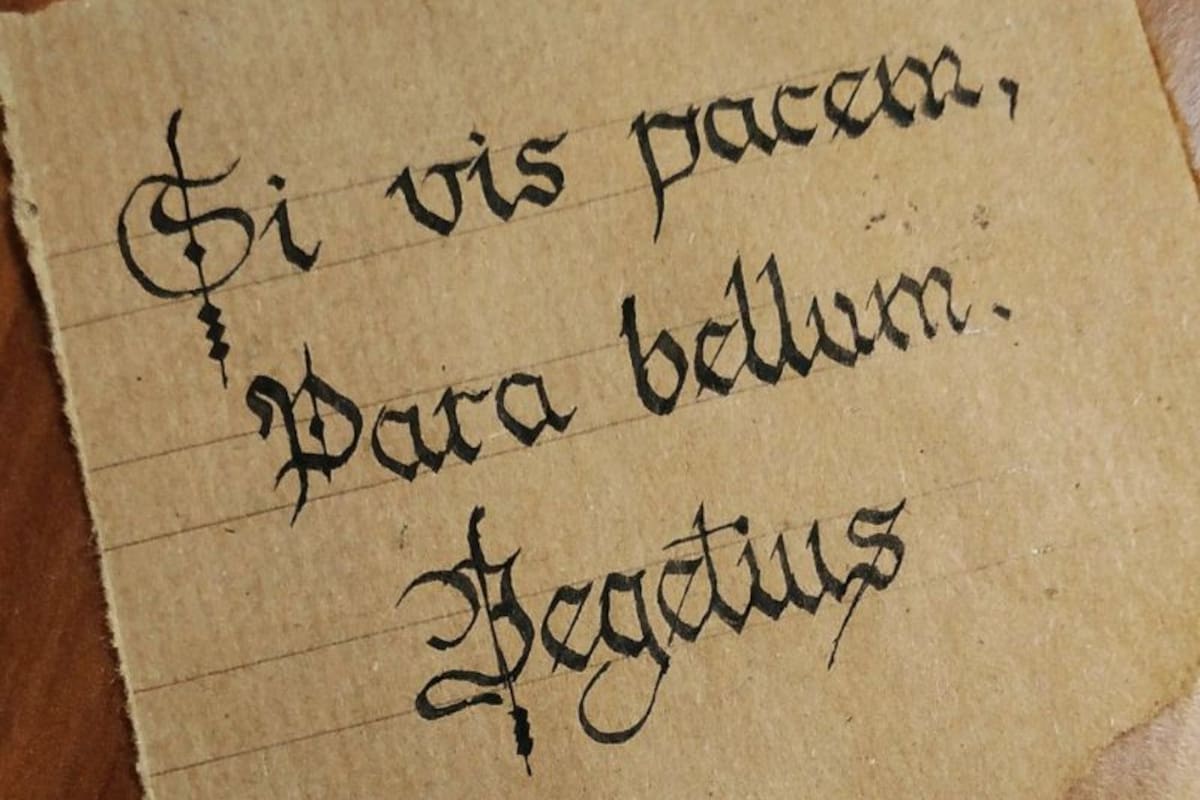 Si vis pacem,
Para bellum.
Vegetius